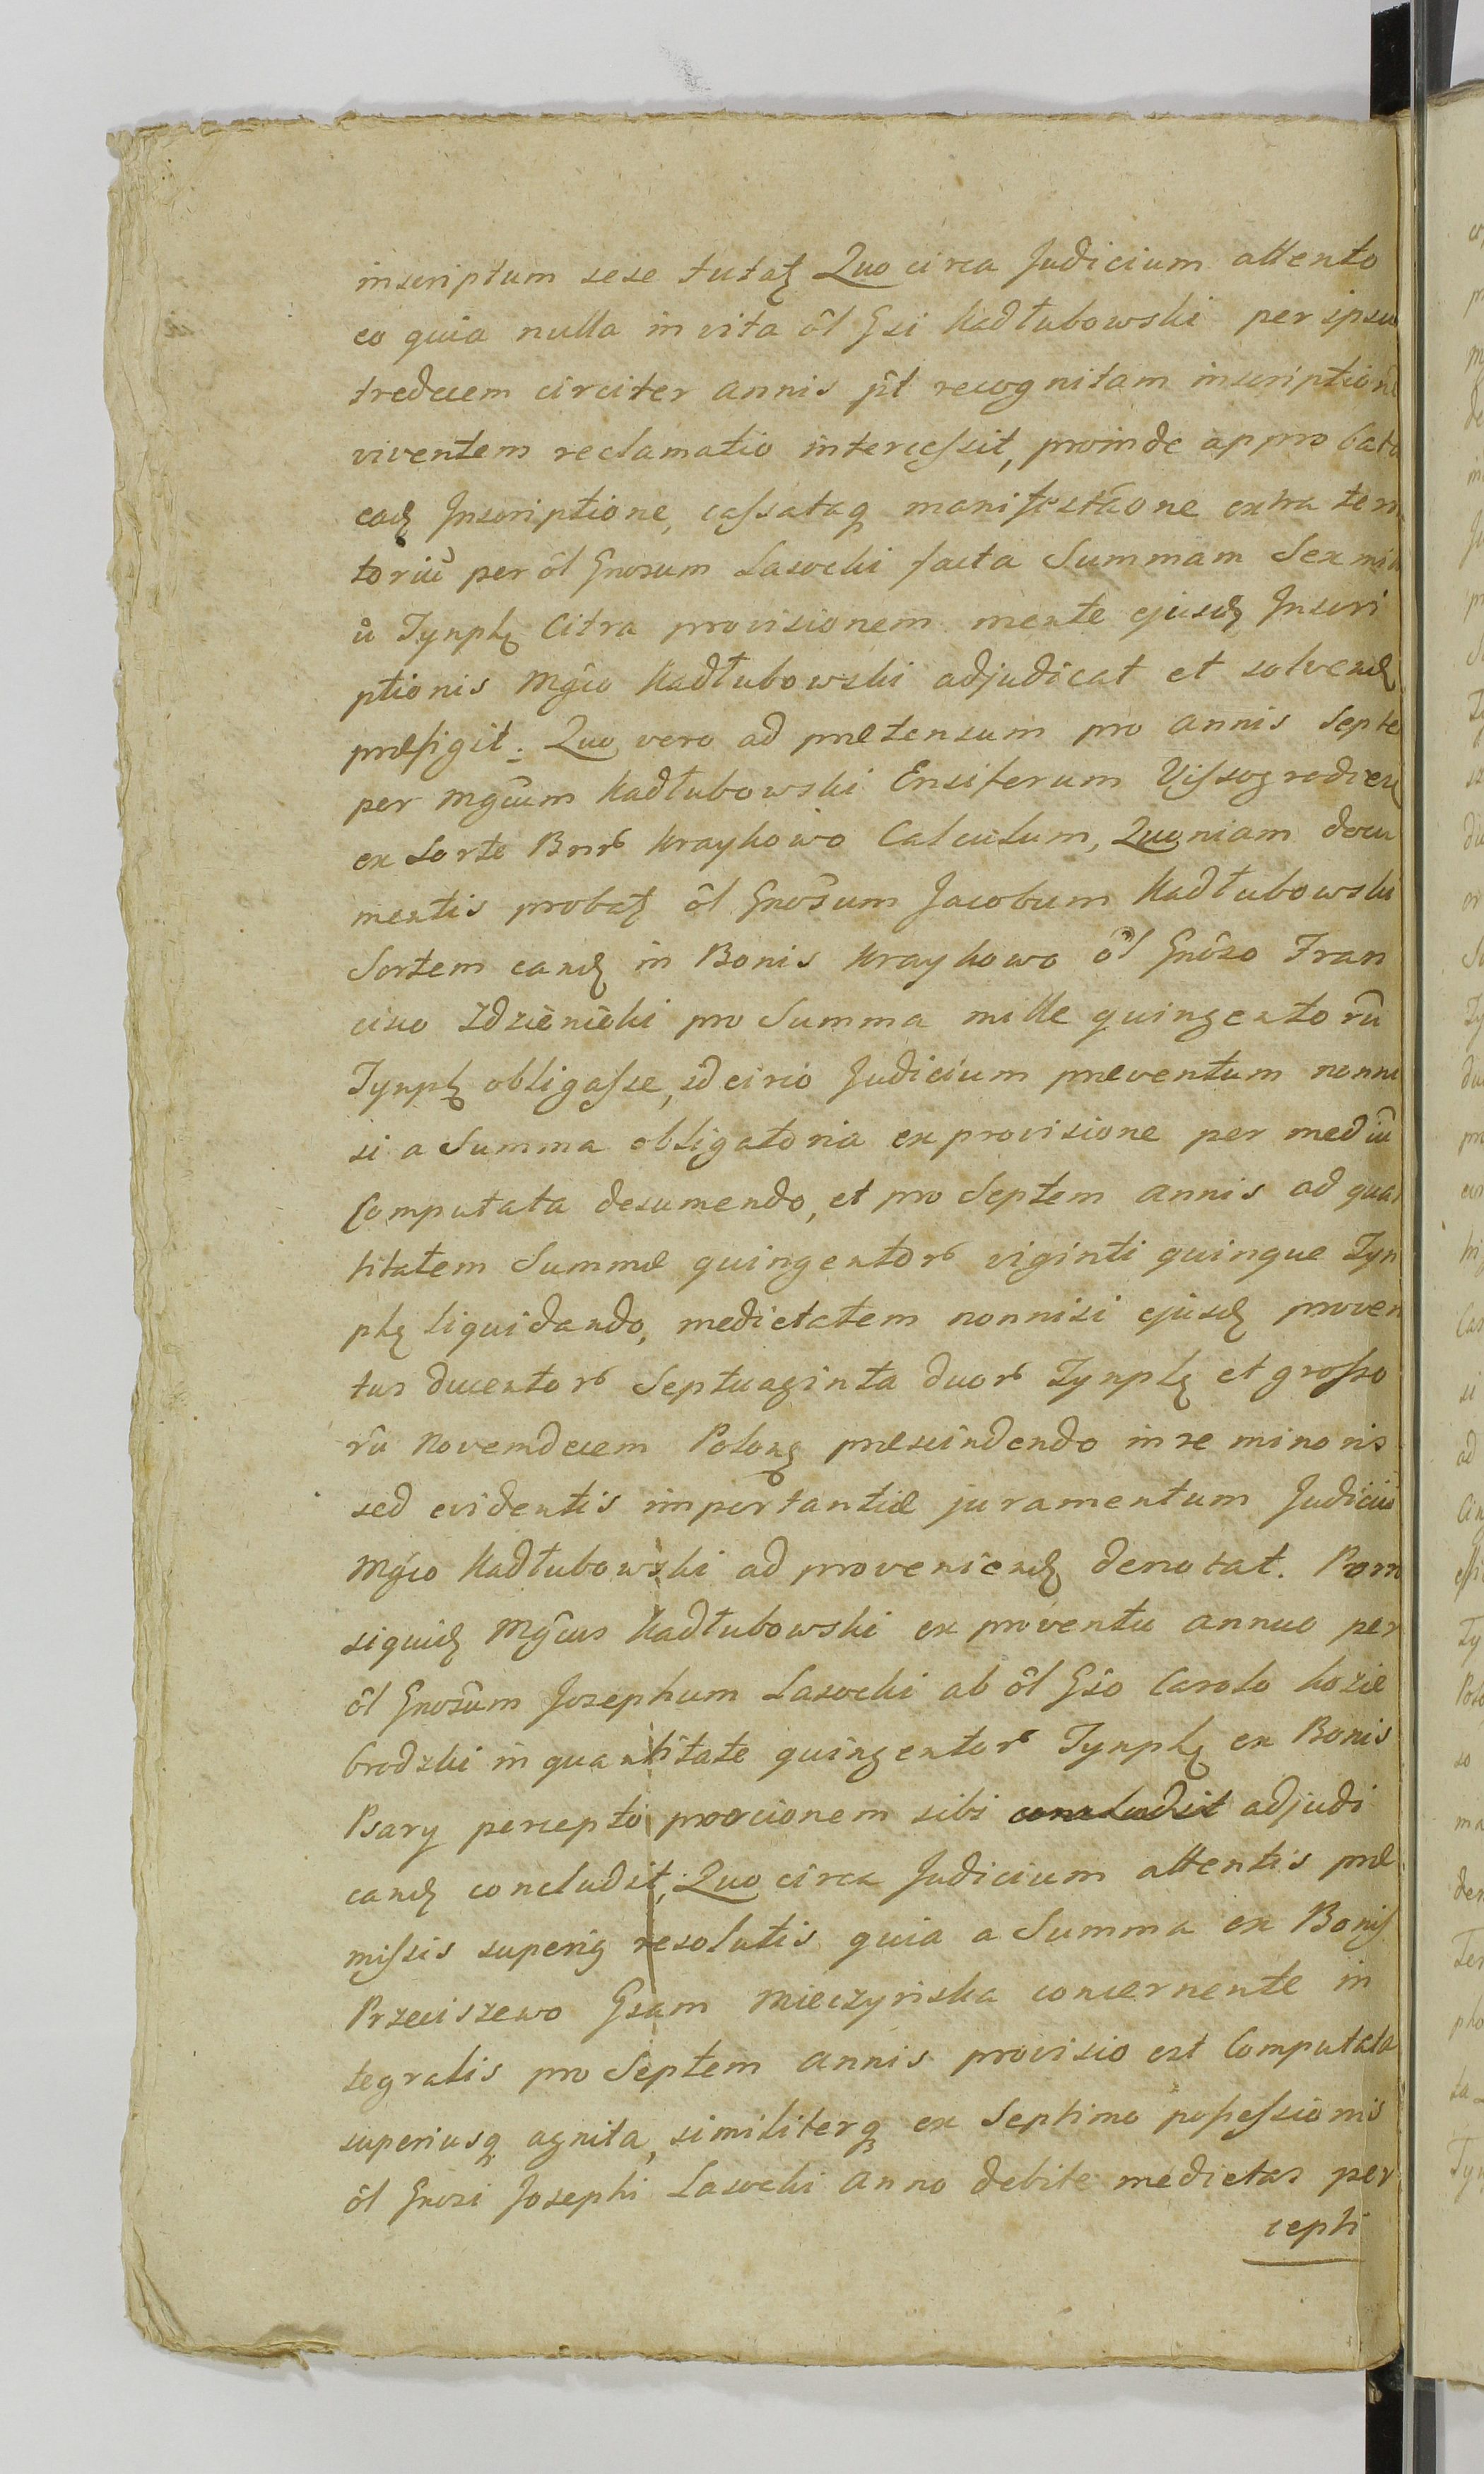 inscriptum sese tutaɮ Quo circa Judicium attento
eo quia nulla in vita ol̂ Gsi Kadłubowski per ipsu
tredecem circiter annis pt̂ recognitam inscriptione
viventem reclamatio intercessit, proinde approbata
eadɮ Inscriptione, cassataqɜ manifestãone extra terri
toriũ per ol̂ Gnosum Lasocki facta Summam Sex mill
iũ Tynphɮ Citra provisionem mente ejusdɮ Inscri
ptionis Mgĉo Kadłubowski adjudicat et solvendɮ
præfigit. Quo vero ad prætensum pro annis Septe
per Mgĉum Kadłubowski Ensiferum Vissogrodienɮ
ex Sorte Bnrũ Kraykowo Calculum, Quoniam docu
mentis probatɮ ol̂ Gnosum Jacobum Kadłubowski
Sortem eandɮ in Bonis Kraykowo ol̂ Gnôso Fran
cisco Zdzienicki pro Summa mille quingentorũ
Tynphɮ obligasse, idcirco Judicium præventum nonni
si a Summa obligatoria ex provisione per mediũ
Computata desumendo, et pro Septem annis ad quan
titatem Summæ quingentorũ viginti quinque Tyn
phɮ liquidando, medietatem nonnisi ejusdɮ proven
tus ducentorũ Septuaginta duorũ Tynphɮ et grosso
rũ Novemdecem Polonɮ præscindendo in re minoris
sed evidentis importantiæ juramentum Judiciũ
Mgĉo Kadłubowski ad proveniendɮ denotat. Porro
siquidɮ Mgĉus Kadłubowski ex proventu annuo per
ol̂ Gnosûm Josephum Lasocki ab ol̂ Gsô Carolo Kozie
brodzki in quantitate quingentorũ Tynphɮ ex Bonis
Psary percepto prorcionem sibi concludit adjudi
candɮ concludit, Quo circa Judicium attentis præ
missis superiɋ resolutis quia a Summa ex Bonis
Przeciszewo Gsam Mieczynska concernente in
tegralis pro Septem annis provisio est Computata
superiusqɜ agnita, similiterqɜ ex Septimo possessionis
ol̂ Gnosi Josephi Lasocki Anno debite medietas per
cepti